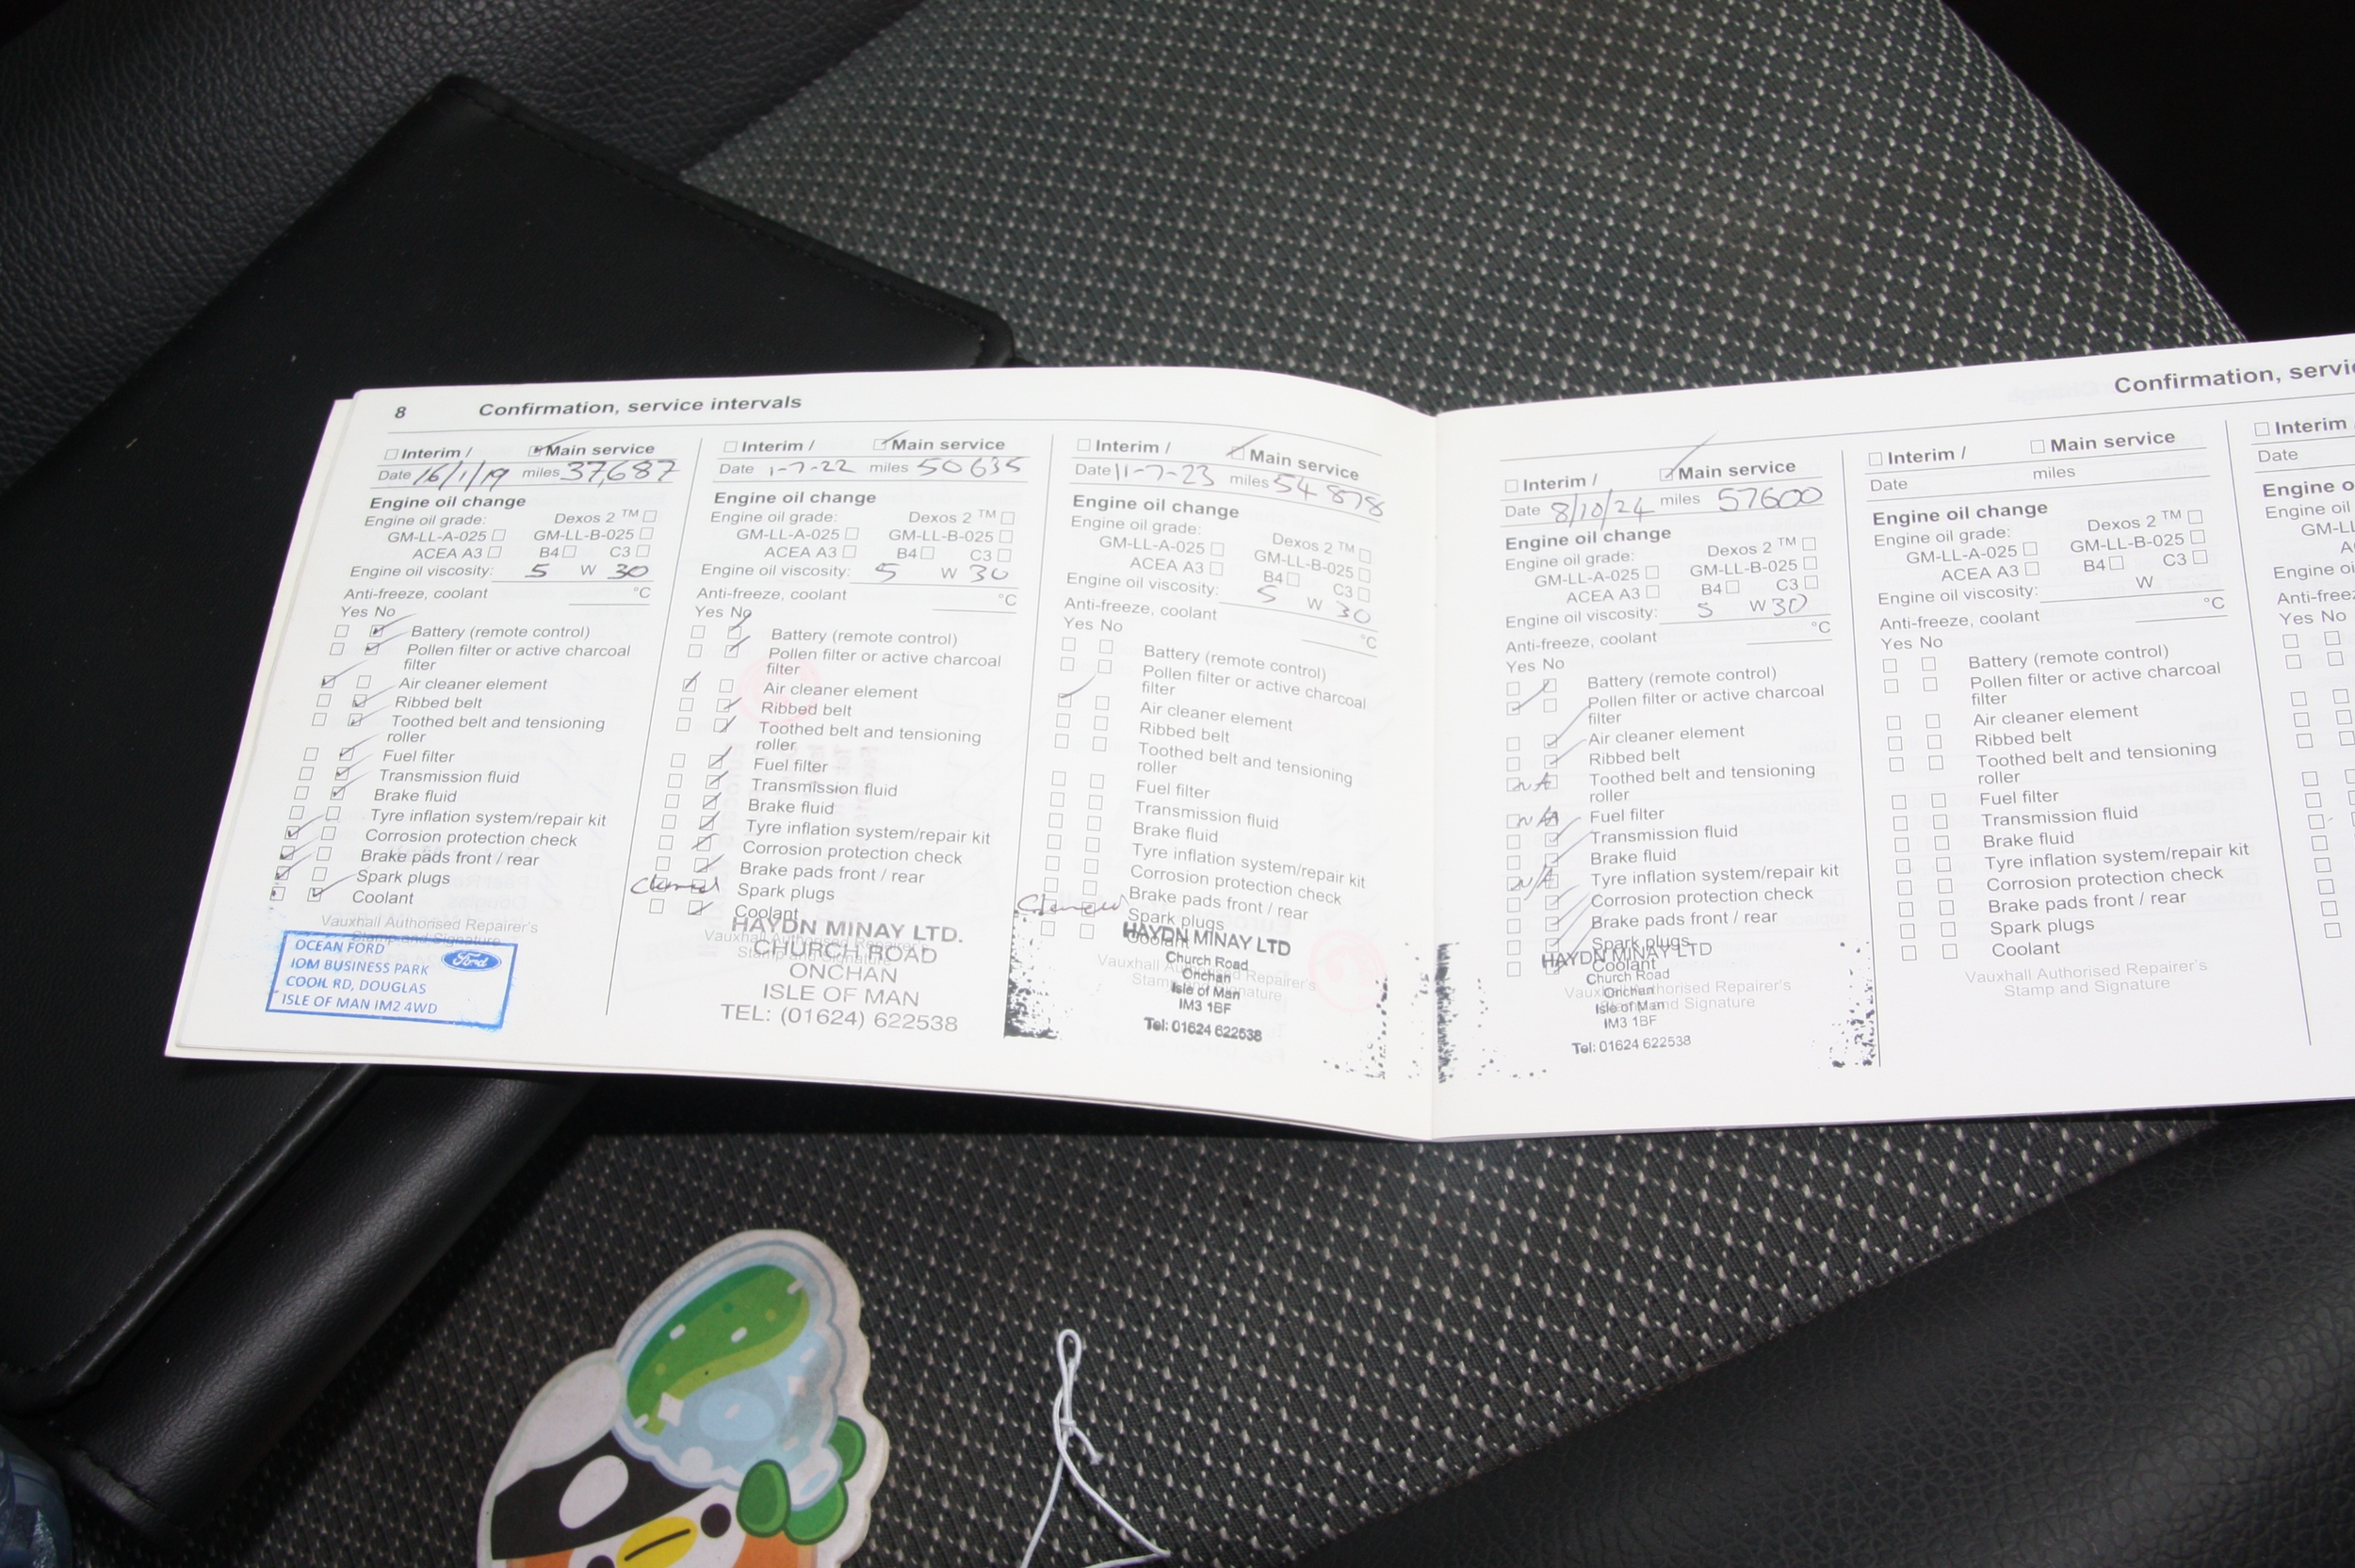 8 Confirmation, service intervals
Interim / Main service
Date 16/1/19 miles 37,687
Engine oil change
Engine oil grade: Dexos 2 ™
GM-LL-A-025 GM-LL-B-025
ACEA A3 B4 C3
Engine oil viscosity: 5 W 30
Anti-freeze, coolant °C
Yes No
Battery (remote control)
Pollen filter or active charcoal
filter
Air cleaner element
Ribbed belt
Toothed belt and tensioning
roller
Fuel filter
Transmission fluid
Brake fluid
Tyre inflation system/repair kit
Corrosion protection check
Brake pads front / rear
Spark plugs
Coolant
Vauxhall Authorised Repairer's
Stamp and Signature
OCEAN FORD
IOM BUSINESS PARK
COOIL RD, DOUGLAS
ISLE OF MAN IM2 4WD
Ford
Interim / Main service
Date 1-7-22 miles 50635
Engine oil change
Engine oil grade: Dexos 2 ™
GM-LL-A-025 GM-LL-B-025
ACEA A3 B4 C3
Engine oil viscosity: 5 W 30
Anti-freeze, coolant °C
Yes No
Battery (remote control)
Pollen filter or active charcoal
filter
Air cleaner element
Ribbed belt
Toothed belt and tensioning
roller
Fuel filter
Transmission fluid
Brake fluid
Tyre inflation system/repair kit
Corrosion protection check
Brake pads front / rear
Cleaned Spark plugs
Coolant
Vauxhall Authorised Repairer's
Stamp and Signature
HAYDN MINAY LTD.
CHURCH ROAD
ONCHAN
ISLE OF MAN
TEL: (01624) 622538
Interim / Main service
Date 11-7-23 miles 54878
Engine oil change
Engine oil grade: Dexos 2 ™
GM-LL-A-025 GM-LL-B-025
ACEA A3 B4 C3
Engine oil viscosity: 5 W 30
Anti-freeze, coolant °C
Yes No
Battery (remote control)
Pollen filter or active charcoal
filter
Air cleaner element
Ribbed belt
Toothed belt and tensioning
roller
Fuel filter
Transmission fluid
Brake fluid
Tyre inflation system/repair kit
Corrosion protection check
Brake pads front / rear
Cleaned Spark plugs
Coolant
Vauxhall Authorised Repairer's
Stamp and Signature
HAYDN MINAY LTD
Church Road
Onchan
Isle of Man
IM3 1BF
Tel: 01624 622538
Confirmation,
Interim / Main service
Date 8/10/24 miles 57600
Engine oil change
Engine oil grade: Dexos 2 ™
GM-LL-A-025 GM-LL-B-025
ACEA A3 B4 C3
Engine oil viscosity: 5 W 30
Anti-freeze, coolant °C
Yes No
Battery (remote control)
Pollen filter or active charcoal
filter
Air cleaner element
Ribbed belt
N/A Toothed belt and tensioning
roller
N/A Fuel filter
Transmission fluid
Brake fluid
N/A Tyre inflation system/repair kit
Corrosion protection check
Brake pads front / rear
Spark plugs
Coolant
Vauxhall Authorised Repairer's
Stamp and Signature
HAYDN MINAY LTD
Church Road
Onchan
Isle of Man
IM3 1BF
Tel: 01624 622538
Interim / Main service
Date miles
Engine oil change
Engine oil grade: Dexos 2 ™
GM-LL-A-025 GM-LL-B-025
ACEA A3 B4 C3
Engine oil viscosity: W
Anti-freeze, coolant °C
Yes No
Battery (remote control)
Pollen filter or active charcoal
filter
Air cleaner element
Ribbed belt
Toothed belt and tensioning
roller
Fuel filter
Transmission fluid
Brake fluid
Tyre inflation system/repair kit
Corrosion protection check
Brake pads front / rear
Spark plugs
Coolant
Vauxhall Authorised Repairer's
Stamp and Signature
Interim
Date
Engine
Engine oil
Engine
Yes No